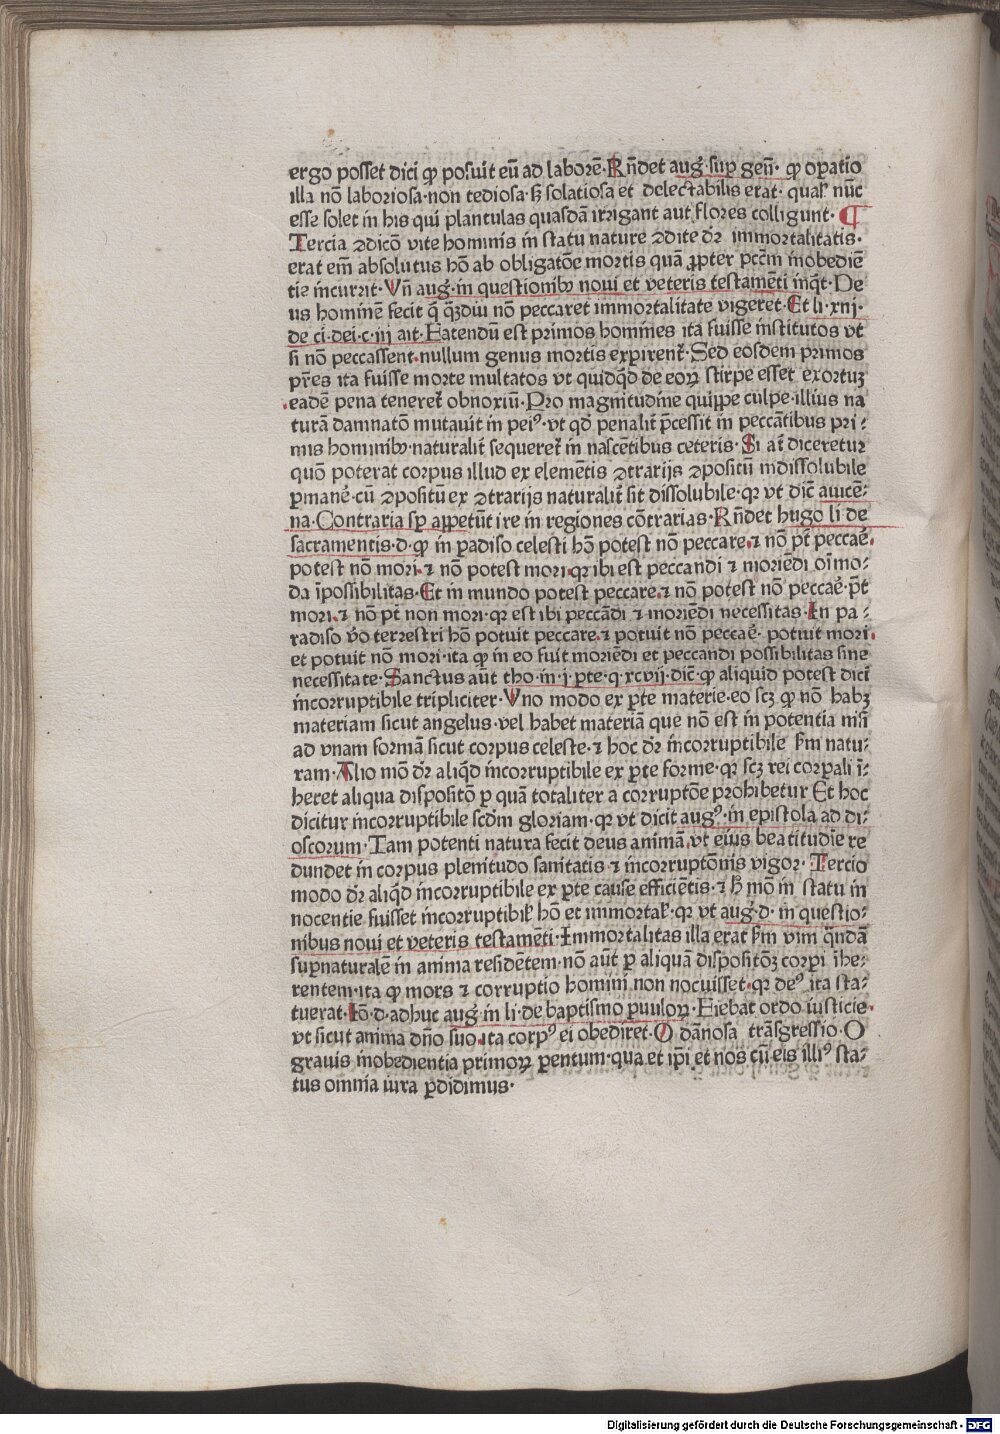 ergo posset dici ꝙ posuit eū ad laborē·Rn̄det aug᷒·sup gen̄· ꝙ oꝑatio
illa nō laboriosa·non tediosa·ſꝫ solatiosa et delectabilis erat· qual᷒ nūc
esse solet in his qui plantulas quasdā irrigant aut flores colligunt· ¶
Tercia ꝯdicō vite hominis in statu nature ꝯdite dr̄ immortalitatis·
erat em̄ absolutus hō ab obligatōe mortis quā ꝓpter pctm̄ inobediē
tie incurrit·Vn̄ aug᷒·in questionibꝫ noui et veteris testamēti inq̄t·De
us hominē fecit q̄ q̄ꝫdiu nō peccaret immortalitate vigeret·Et li·xiij·
de ci·dei·c·iij ait·Fatendū est primos homines ita fuisse institutos vt
si nō peccassent·nullum genus mortis exꝑirent᷒·Sed eosdem primos
pr̄es ita fuisse morte multatos vt quidq̄d de eoꝝ stirpe esset exortuꝫ
eadē pena teneret᷒ obnoxiū·Pro magnitudine quippe culpe·illius na
turā damnatō mutauit in pei⁹·vt qd̄ penalit᷒ p̄cessit in peccātibus pri⸗
mis hominibꝫ·naturalit᷒ sequeret᷒ in nascētibus ceteris·Si at᷒ diceretur
quō poterat corpus illud ex elemētis ꝯtrarijs ꝯpositū indissolubile
ꝑmane᷒·cū ꝯpositū ex ꝯtrarijs naturalit᷒ sit dissolubile·qꝛ vt dic̄ auicē⸗
na·Contraria sꝑ appetūt ire in regiones cōtrarias·Rn̄det hugo li de
sacramentis·d·ꝙ in ꝑadiso celesti hō potest nō peccare·⁊ nō pt̄ peccae᷒·
potest nō mori·⁊ nō potest mori·qꝛ ibi est peccandi ⁊ moriēdi oīmo⸗
da īpossibilitas·Et in mundo potest peccare·⁊ nō potest nō peccae᷒·pt̄
mori·⁊ nō pt̄ non mori·qꝛ est ibi peccādi ⁊ moriēdi necessitas·In pa⸗
radiso v̄o terrestri hō potuit peccare·⁊ potuit nō peccae᷒· potuit mori·
et potuit nō mori·ita ꝙ in eo fuit moriēdi et peccandi possibilitas sine
necessitate·Sanctus aūt tho·in·j·ꝑte·q·xcvij·dic̄·ꝙ aliquid potest dici
incorruptibile tripliciter·Vno modo ex ꝑte materie·eo scꝫ ꝙ nō habꝫ
materiam sicut angelus·vel habet materiā que nō est in potentia nisi
ad vnam formā sicut corpus celeste·⁊ hoc dr̄ incorruptibile ẜm natu⸗
ram·Alio mō dr̄ aliq̄d incorruptibile ex ꝑte forme·qꝛ scꝫ rei corꝑali ī⸗
heret aliqua dispositō ꝑ quā totaliter a corruptōe prohibetur Et hoc
dicitur incorruptibile scdm̄ gloriam·qꝛ vt dicit aug⁹·in epistola ad di⸗
oscorum·Tam potenti natura fecit deus animā·vt eius beatitudīe re
dundet in corpus plenitudo sanitatis·⁊ incorruptōnis vigor·Tercio
modo dr̄ aliq̄d incorruptibile ex ꝑte cause efficiētis·⁊ h̄ mō in statu in
nocentie fuisset incorruptibil᷒ hō et immortal᷒·qꝛ vt aug᷒·d·in questio⸗
nibus noui et veteris testamēti·Immortalitas illa erat ẜm vim q̄ndā
suꝑnaturalē in anima residētem·nō aūt ꝑ aliquā dispositōꝫ corpi īhe⸗
rentem·ita ꝙ mors ⁊ corruptio homini non nocuisset·qꝛ de⁹ ita sta⸗
tuerat·Iō·d·adhuc aug᷒·in li·de baptismo ꝑuuloꝝ·Fiebat ordo iusticie·
vt sicut anima dn̄o suo·ita corp⁹ ei obediret·O dānosa trāsgressio·O
grauis inobedientia primoꝝ ꝑentum·qua et ip̄i et nos cū eis illi⁹ sta⸗
tus omnia iura ꝑdidimus·
Digitalisierung gefördert durch die Deutsche Forschungsgemeinschaft - DFG